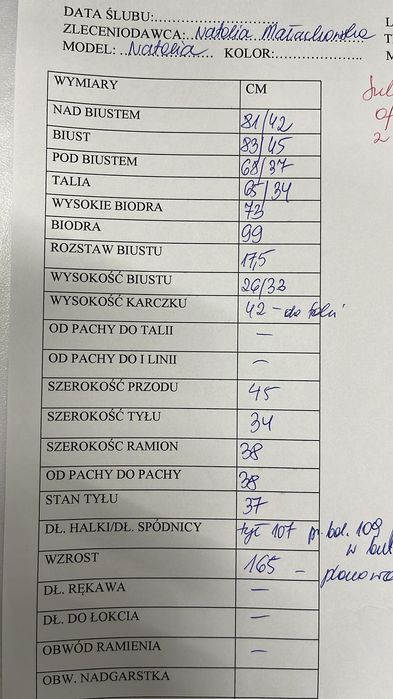 DATA ŚLUBU:..............................
ZLECENIODAWCA: Natalia Małachowska
MODEL: Natalia KOLOR:.....................
WYMIARY CM
NAD BIUSTEM 81/42
BIUST 83/45
POD BIUSTEM 68/37
TALIA 65/34
WYSOKIE BIODRA 73
BIODRA 99
ROZSTAW BIUSTU 17,5
WYSOKOŚĆ BIUSTU 26/33
WYSOKOŚĆ KARCZKU 42 - do talii
OD PACHY DO TALII —
OD PACHY DO I LINII —
SZEROKOŚĆ PRZODU 45
SZEROKOŚĆ TYŁU 34
SZEROKOŚC RAMION 38
OD PACHY DO PACHY 38
STAN TYŁU 37
DŁ. HALKI/DŁ. SPÓDNICY tył 107 pr. bok. 109
w but
WZROST 165 -
DŁ. RĘKAWA —
DŁ. DO ŁOKCIA —
OBWÓD RAMIENIA —
OBW. NADGARSTKA